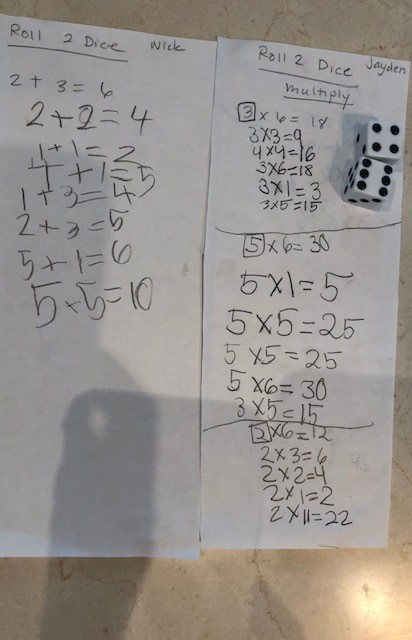 Roll 2 Dice Nick
2 + 3 = 6
2+2=4
1+1=2
4+1=5
1+3=4
2+3=5
5+1=6
5+5=10
Roll 2 Dice Jayden
multiply
3 x 6 = 18
3x3=9
4x4=16
3x6=18
3x1=3
3x5=15
5 x 6= 30
5x1=5
5x5=25
5x5=25
5x6=30
3x5=15
2x6=12
2x3=6
2x2=4
2x1=2
2x11=22